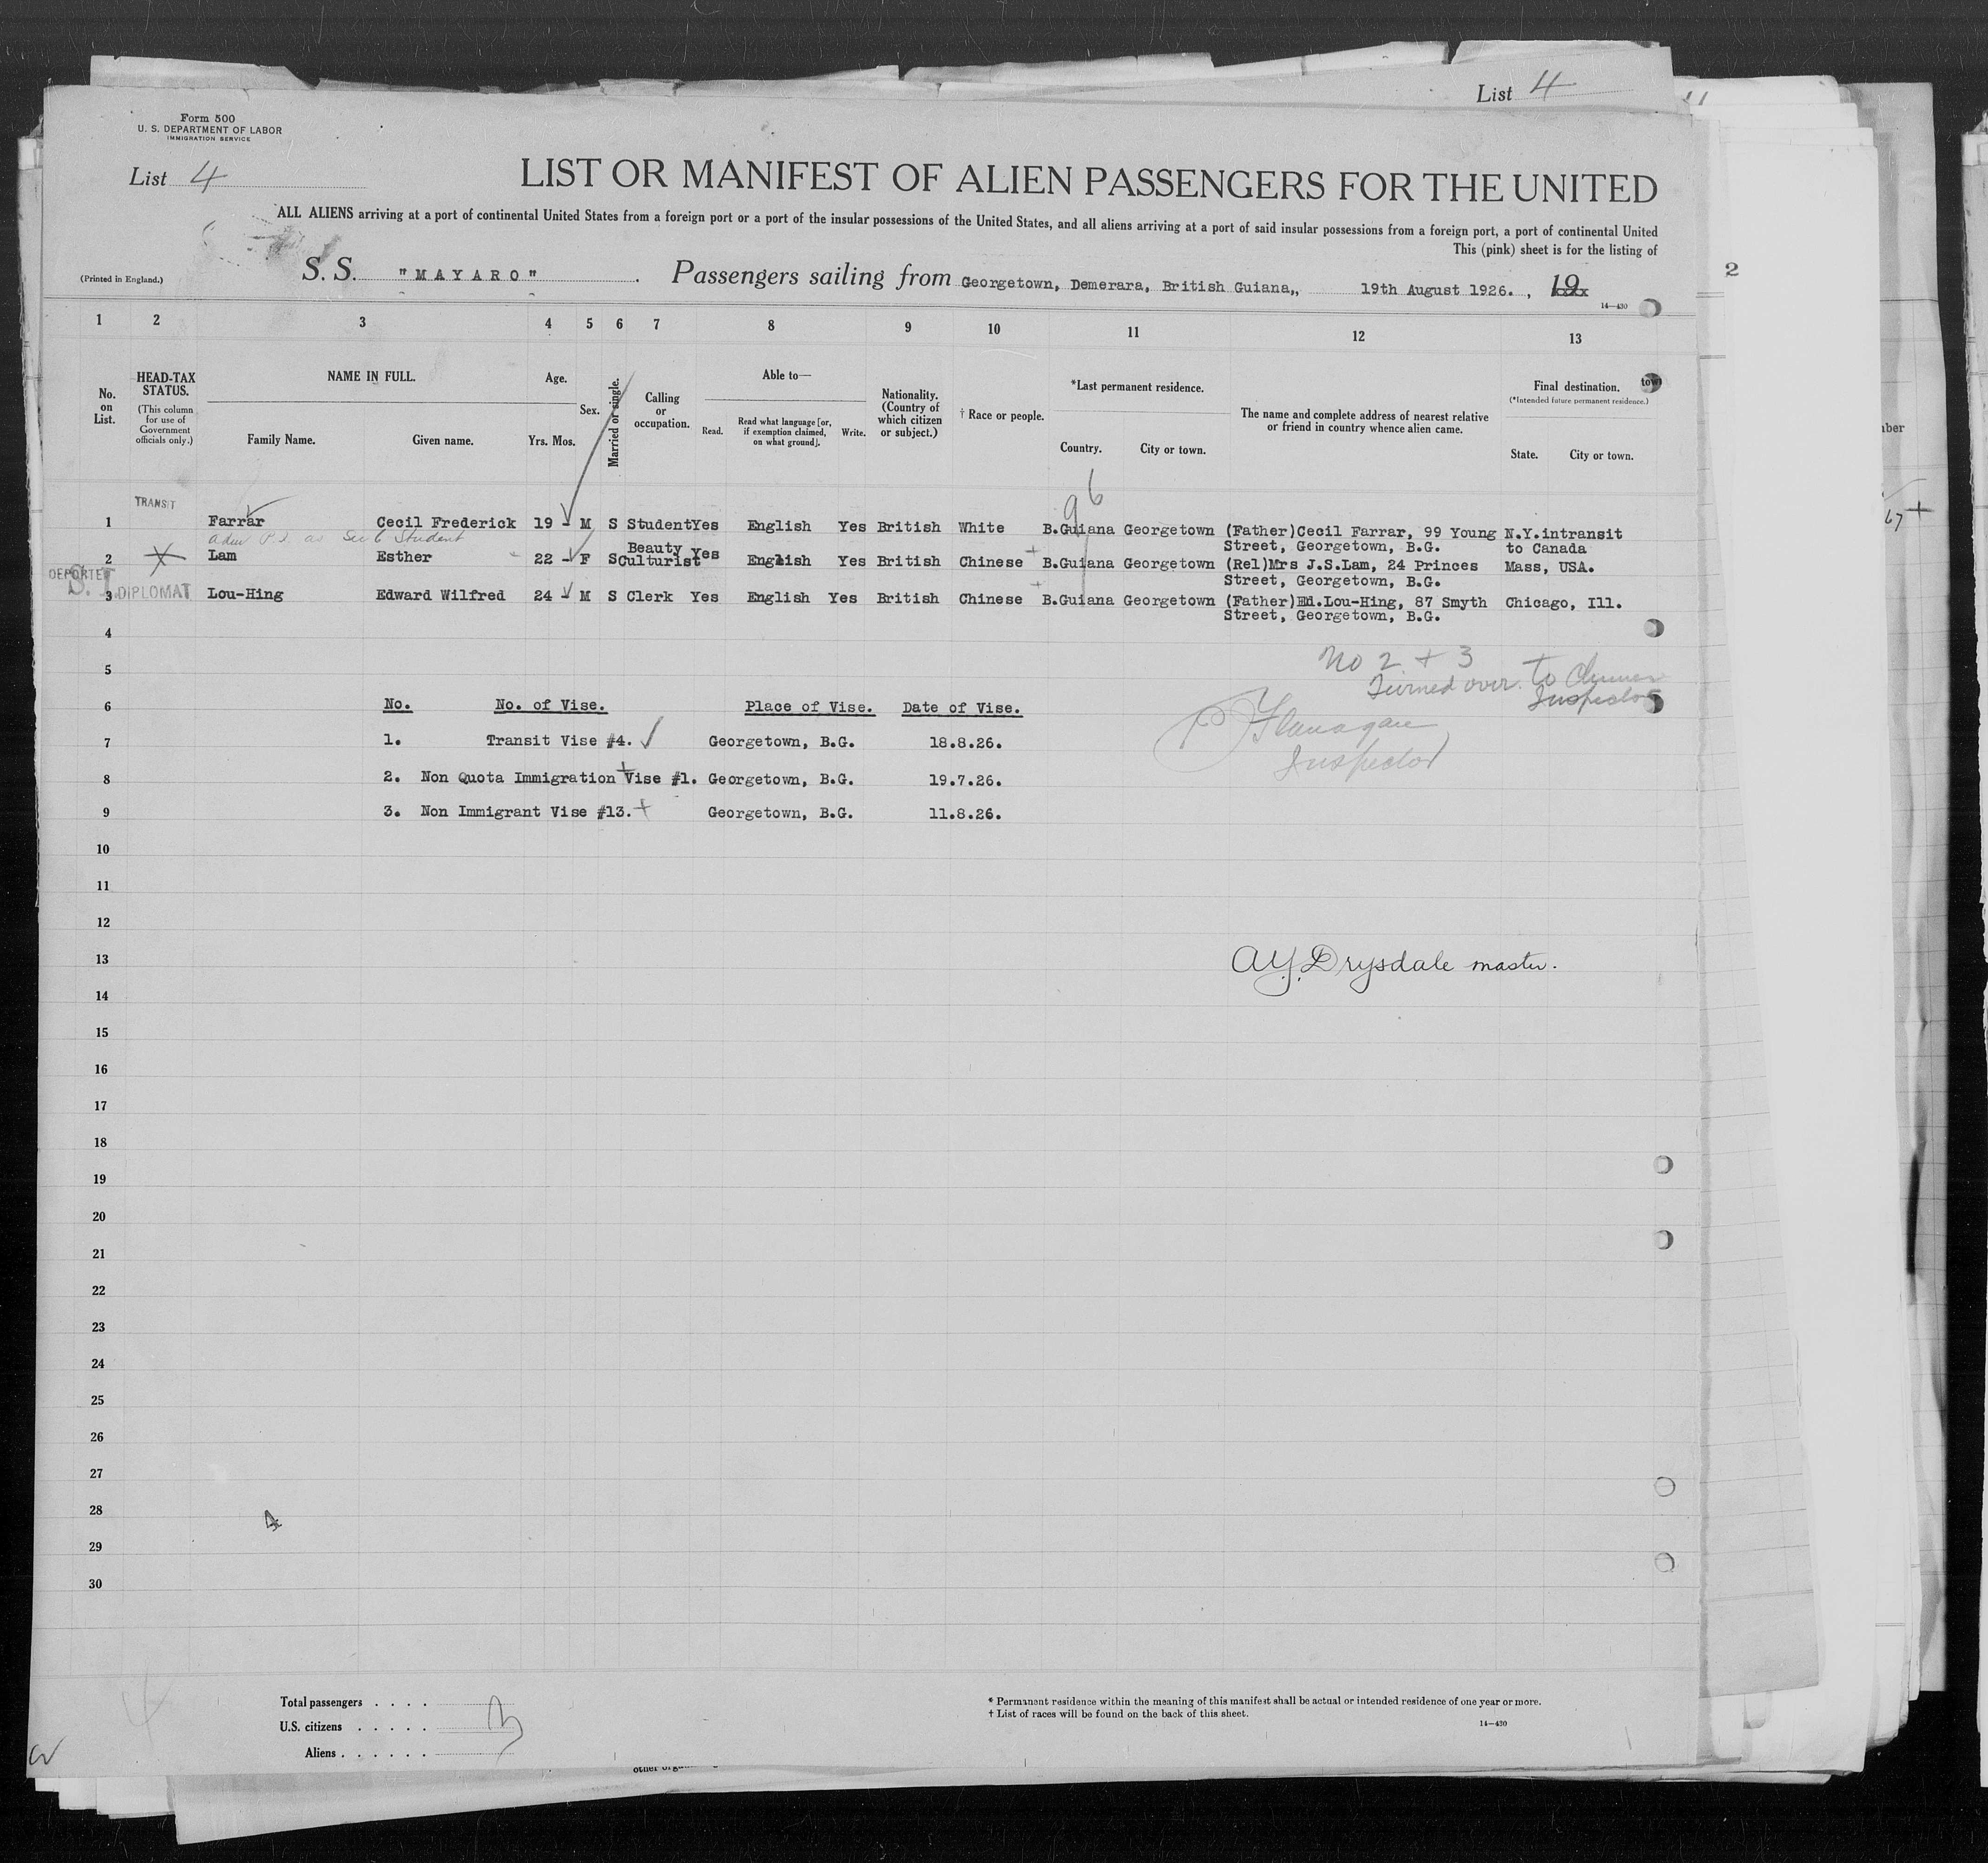 List 4
Form 500
U. S. DEPARTMENT OF LABOR
IMMIGRATION SERVICE
List 4
LIST OR MANIFEST OF ALIEN PASSENGERS FOR THE UNITED
ALL ALIENS arriving at a port of continental United States from a foreign port or a port of the insular possessions of the United States, and all aliens arriving at a port of said insular possessions from a foreign port, a port of continental United
This (pink) sheet is for the listing of
(Printed in England.)
S. S. "MAYARO". Passengers sailing from Georgetown, Demerara, British Guiana,, 19th August 1926. , 19
14—430
1 2 3 4 5 6 7 8 9 10 11 12 13
No. on List.
HEAD-TAX STATUS.
(This column for use of Government officials only.)
NAME IN FULL.
Family Name. Given name.
Age.
Yrs. Mos.
Sex.
Married or single.
Calling or occupation.
Able to—
Read. Read what language [or, if exemption claimed, on what ground]. Write.
Nationality. (Country of which citizen or subject.)
† Race or people.
*Last permanent residence.
Country. City or town.
The name and complete address of nearest relative or friend in country whence alien came.
Final destination.
(*Intended future permanent residence.)
State. City or town.
town
96
TRANSIT
1 Farrar Cecil Frederick 19 - M S Student Yes English Yes British White B.Guiana Georgetown (Father)Cecil Farrar, 99 Young N.Y.intransit
Street, Georgetown, B.G. to Canada
as Sec 6 Student
2 Lam Esther 22 - F S Beauty Culturist Yes English Yes British Chinese B.Guiana Georgetown (Rel)Mrs J.S.Lam, 24 Princes Mass, USA.
Street, Georgetown, B.G.
DEPORTED
S. I.
DIPLOMAT
3 Lou-Hing Edward Wilfred 24 M S Clerk Yes English Yes British Chinese B.Guiana Georgetown (Father)Ed.Lou-Hing, 87 Smyth Chicago, Ill.
Street, Georgetown, B.G.
4
5
No 2 + 3
Turned over to Chinese
Inspector
P Flanagan
Inspector
6 No. No. of Vise. Place of Vise. Date of Vise.
7 1. Transit Vise #4. Georgetown, B.G. 18.8.26.
8 2. Non Quota Immigration Vise #1. Georgetown, B.G. 19.7.26.
9 3. Non Immigrant Vise #13. Georgetown, B.G. 11.8.26.
10
11
12
13
A.Y. Drysdale master.
14
15
16
17
18
19
20
21
22
23
24
25
26
27
28
4
29
30
Total passengers . . . .
U.S. citizens . . . . .
Aliens . . . . . .
3
* Permanent residence within the meaning of this manifest shall be actual or intended residence of one year or more.
† List of races will be found on the back of this sheet.
14—430
2
67